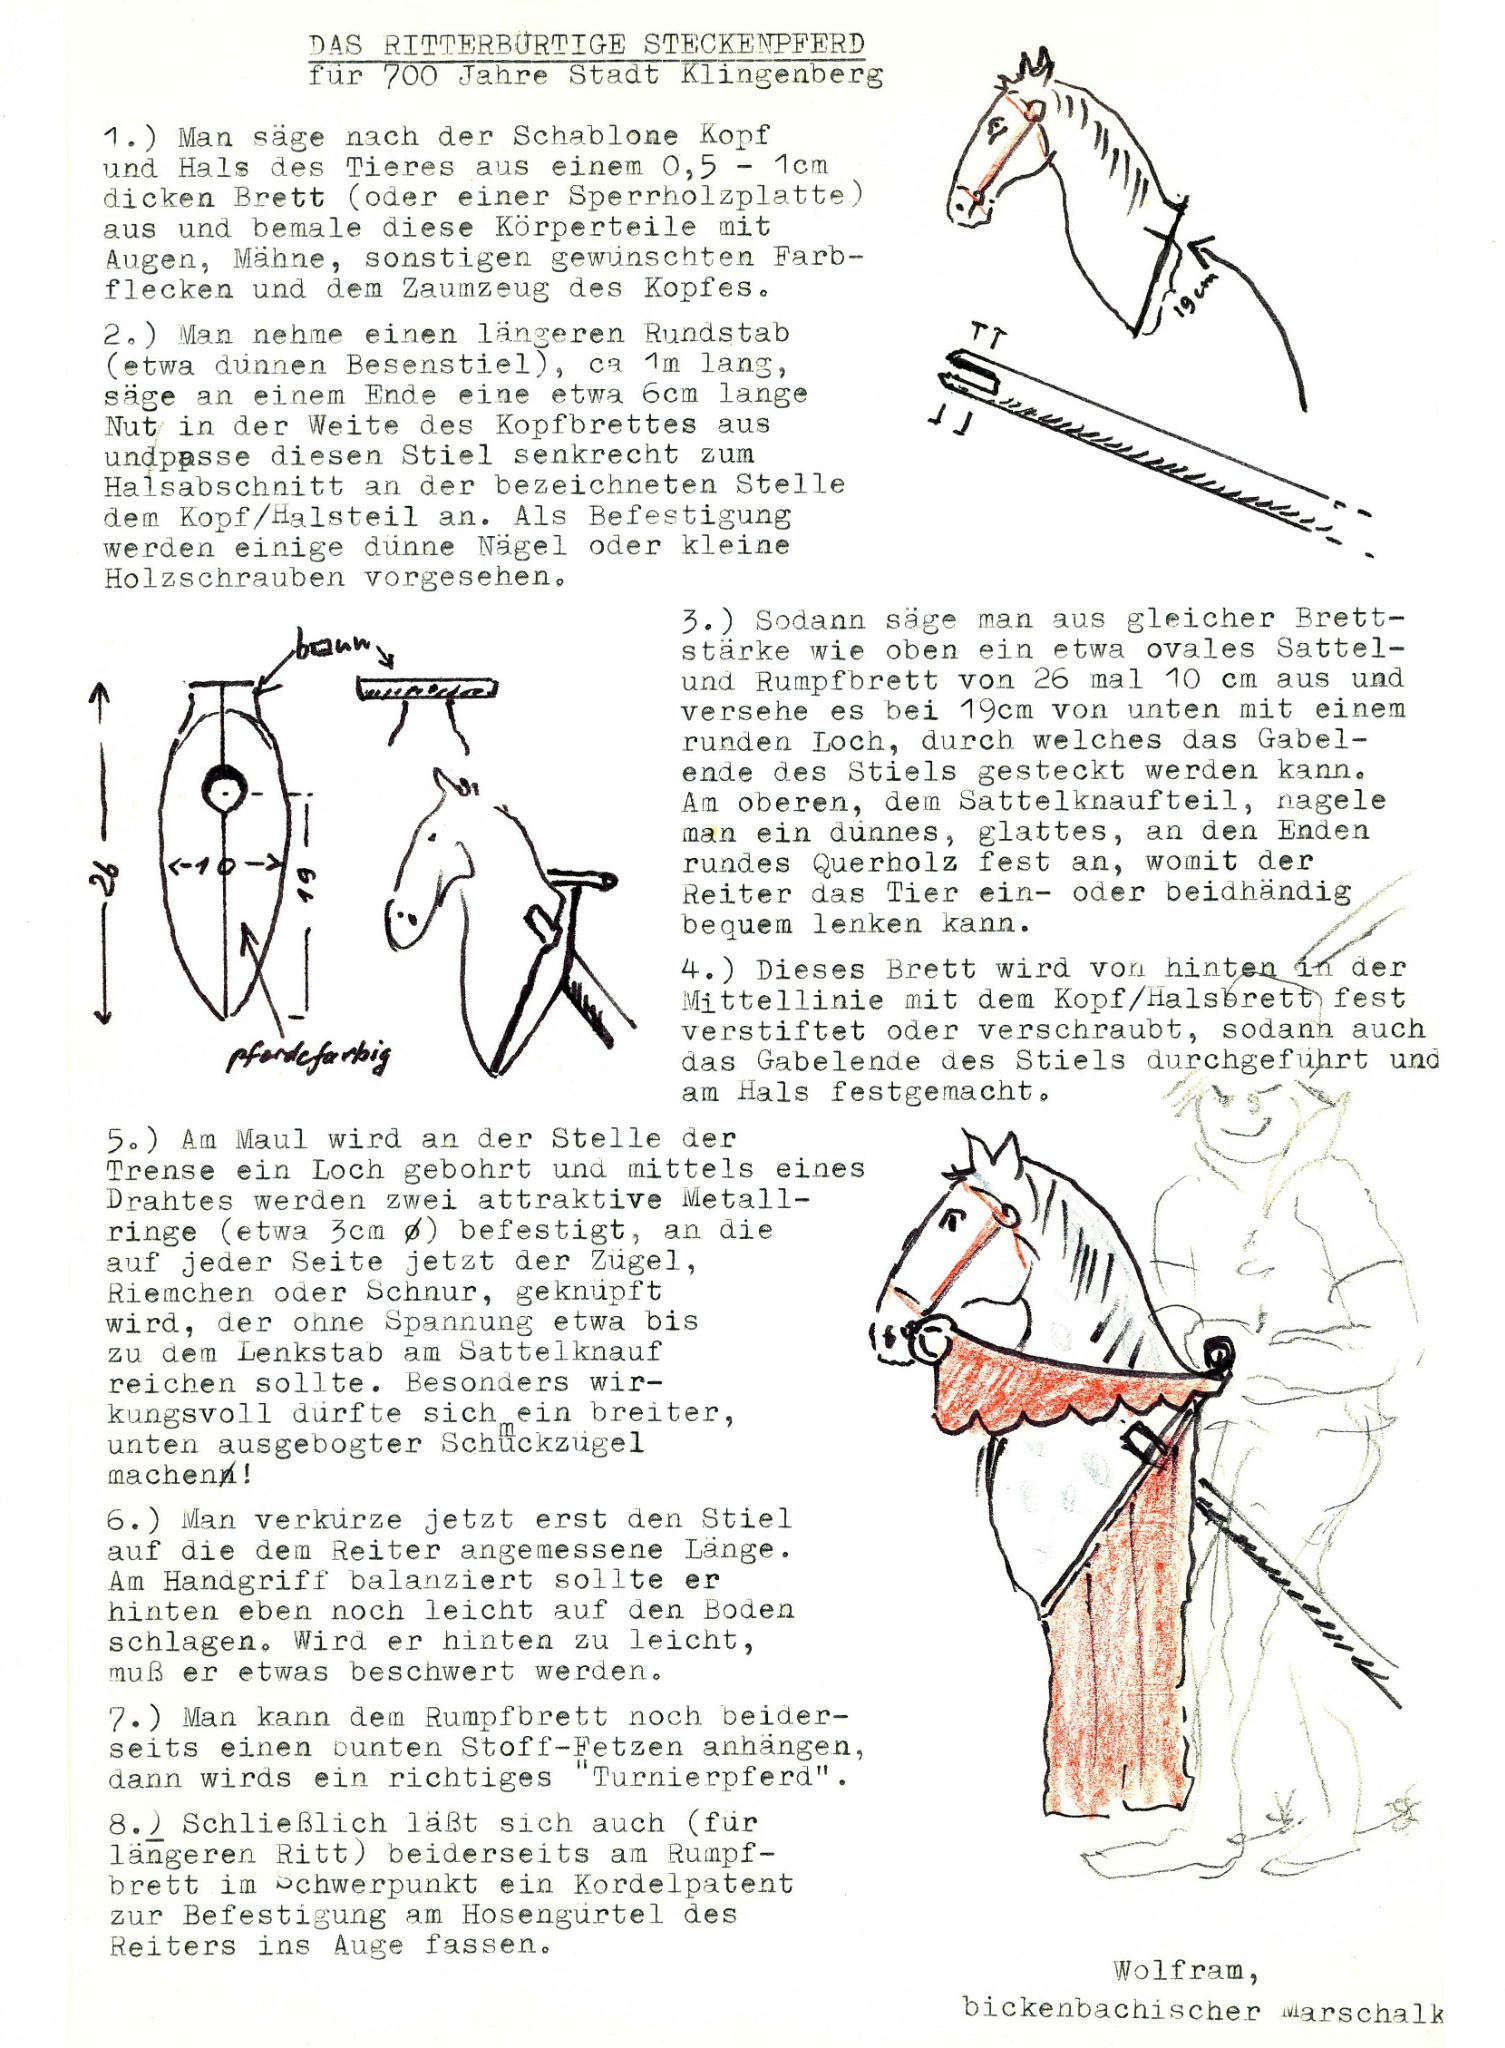 DAS RITTERBÜRTIGE STECKENPFERD
für 700 Jahre Stadt Klingenberg
1.) Man säge nach der Schablone Kopf
und Hals des Tieres aus einem 0,5 - 1cm
dicken Brett (oder einer Sperrholzplatte)
aus und bemale diese Körperteile mit
Augen, Mähne, sonstigen gewünschten Farb-
flecken und dem Zaumzeug des Kopfes.
19cm
2.) Man nehme einen längeren Rundstab
(etwa dünnen Besenstiel), ca 1m lang,
säge an einem Ende eine etwa 6cm lange
Nut in der Weite des Kopfbrettes aus
undpasse diesen Stiel senkrecht zum
Halsabschnitt an der bezeichneten Stelle
dem Kopf/Halsteil an. Als Befestigung
werden einige dünne Nägel oder kleine
Holzschrauben vorgesehen.
braun
26
10
19
pferdefarbig
3.) Sodann säge man aus gleicher Brett-
stärke wie oben ein etwa ovales Sattel-
und Rumpfbrett von 26 mal 10 cm aus und
versehe es bei 19cm von unten mit einem
runden Loch, durch welches das Gabel-
ende des Stiels gesteckt werden kann.
Am oberen, dem Sattelknaufteil, nagele
man ein dünnes, glattes, an den Enden
rundes Querholz fest an, womit der
Reiter das Tier ein- oder beidhändig
bequem lenken kann.
4.) Dieses Brett wird von hinten in der
Mittellinie mit dem Kopf/Halsbrett fest
verstiftet oder verschraubt, sodann auch
das Gabelende des Stiels durchgeführt und
am Hals festgemacht.
5.) Am Maul wird an der Stelle der
Trense ein Loch gebohrt und mittels eines
Drahtes werden zwei attraktive Metall-
ringe (etwa 3cm ø) befestigt, an die
auf jeder Seite jetzt der Zügel,
Riemchen oder Schnur, geknüpft
wird, der ohne Spannung etwa bis
zu dem Lenkstab am Sattelknauf
reichen sollte. Besonders wir-
kungsvoll dürfte sich ein breiter,
unten ausgebogter Schmuckzügel
machen!
6.) Man verkürze jetzt erst den Stiel
auf die dem Reiter angemessene Länge.
Am Handgriff balanziert sollte er
hinten eben noch leicht auf den Boden
schlagen. Wird er hinten zu leicht,
muß er etwas beschwert werden.
7.) Man kann dem Rumpfbrett noch beider-
seits einen bunten Stoff-Fetzen anhängen,
dann wirds ein richtiges "Turnierpferd".
8.) Schließlich läßt sich auch (für
längeren Ritt) beiderseits am Rumpf-
brett im Schwerpunkt ein Kordelpatent
zur Befestigung am Hosengürtel des
Reiters ins Auge fassen.
Wolfram,
bickenbachischer Marschalk